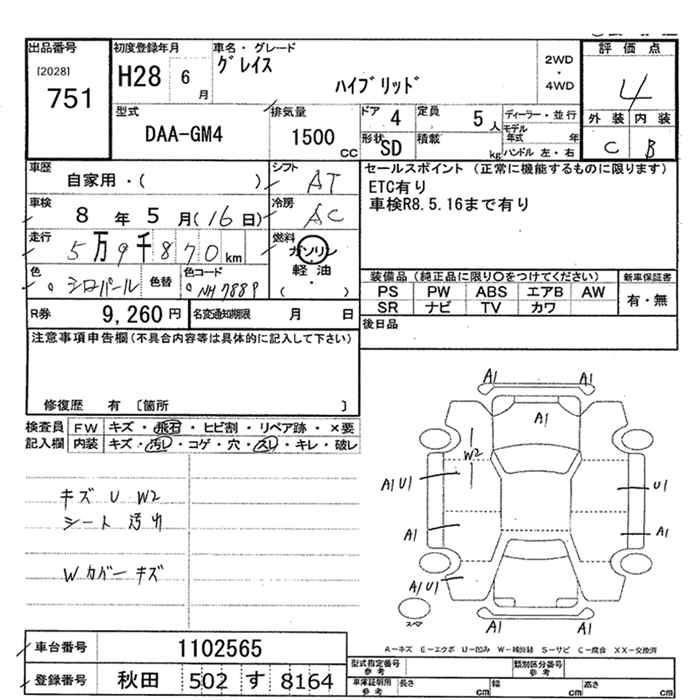 出品番号
[2028]
751
初度登録年月
H28 6 月
車名・グレード
グレイス
ハイブリッド
2WD
・
4WD
評価点
4
外装 内装
C B
型式
DAA-GM4
排気量
1500 CC
ドア 4
定員 5 人
形状 SD
積載 kg
ディーラー・並行
モデル年式 年
ハンドル 左・右
車歴
自家用・( )
シフト AT
車検
8 年 5 月(16日)
冷房 AC
走行
5万9千870 km
燃料
ガソリン
軽油
( )
色 シロパール
色替
色コード NH788P
R券 9,260 円
名変通知期限 月 日
セールスポイント (正常に機能するものに限ります)
ETC有り
車検R8.5.16まで有り
装備品 (純正品に限り○をつけてください)
PS PW ABS エアB AW
SR ナビ TV カワ
新車保証書
有・無
後日品
注意事項申告欄(不具合内容等は具体的に記入して下さい)
修復歴 有 〔箇所 〕
検査員記入欄
FW キズ・飛石・ヒビ割・リペア跡・×要
内装 キズ・汚レ・コゲ・穴・スレ・キレ・破レ
キズ U W2
シート 汚れ
Wカバー キズ
A1 A1
A1
W2
A1 U1
U1
A1
A1
A1 U1
スペア
A1 A1
A-キズ E-エクボ U-凹み W-補修跡 S-サビ C-腐食 XX-交換済
車台番号 1102565
登録番号 秋田 502 す 8164
型式指定番号 参考
類別区分番号 参考
車庫証明用 参考
長さ cm 幅 cm 高さ cm